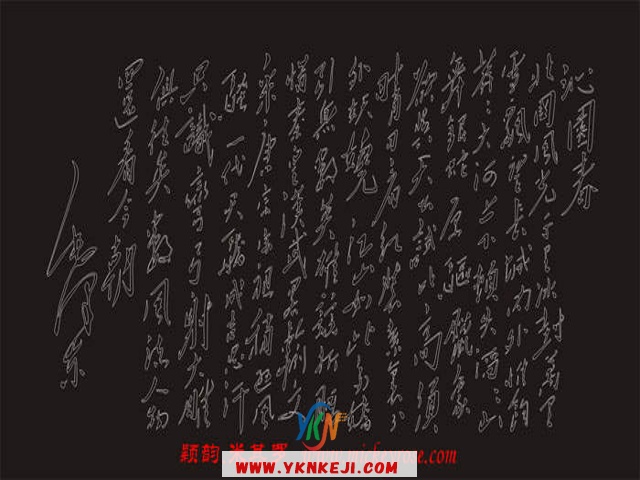 沁園春
北國風光千里冰封萬里
雪飄望長城內外惟餘
莽々大河上下頓失滔々山
舞銀蛇原驅臘象
欲與天公試比高須
晴日看紅裝素裹分
外妖嬈江山如此多嬌
引無數英雄競折腰
惜秦皇漢武略輸文
采唐宗宋祖稍遜風
騷一代天驕成吉思汗
只識彎弓射大雕
俱往矣數風流人物
還看今朝
毛澤東
YKN
颖韵
WWW.YKNKEJI.COM